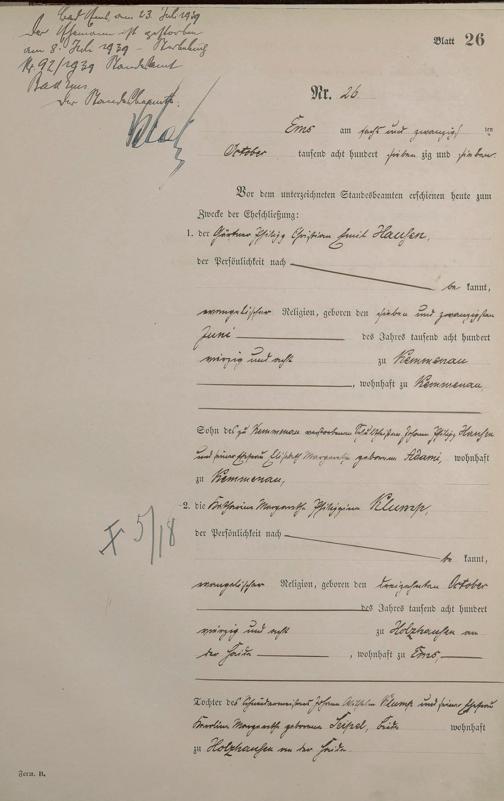 Bad Ems, am 23. Juli 1939
Der Ehemann ist gestorben
am 8. Juli 1939 - Sterbebuch
Nr. 92/1939 Standesamt
Bad Ems
Der Standesbeamte:
Blatt 26
Nr. 26.
Ems am sechs und zwanzig ten
October tausend acht hundert sieben zig und sieben.
Vor dem unterzeichneten Standesbeamten erschienen heute zum
Zwecke der Eheschließung:
1. der Gärtner Philipp Christian Emil Hausen,
der Persönlichkeit nach
be kannt,
evangelischer Religion, geboren den sieben und zwanzigsten
Juni des Jahres tausend acht hundert
vierzig und acht zu Kemmenau
, wohnhaft zu Kemmenau,
Sohn des zu Kemmenau verstorbenen Johann Philipp Hausen
und seiner Ehefrau Elisabeth Margarethe geborenen Adami, wohnhaft
zu Kemmenau,
2. die Katharine Margarethe Philippine Klump,
der Persönlichkeit nach
be kannt,
evangelischer Religion, geboren den dreizehnten October
des Jahres tausend acht hundert
vierzig und acht zu Holzhausen an
der Haide , wohnhaft zu Ems,
X 5/18
Tochter des Schneidermeisters Johann Wilhelm Klump und seiner Ehefrau
Karoline Margarethe geborenen Seipel, Beide wohnhaft
zu Holzhausen an der Haide
Form. B.